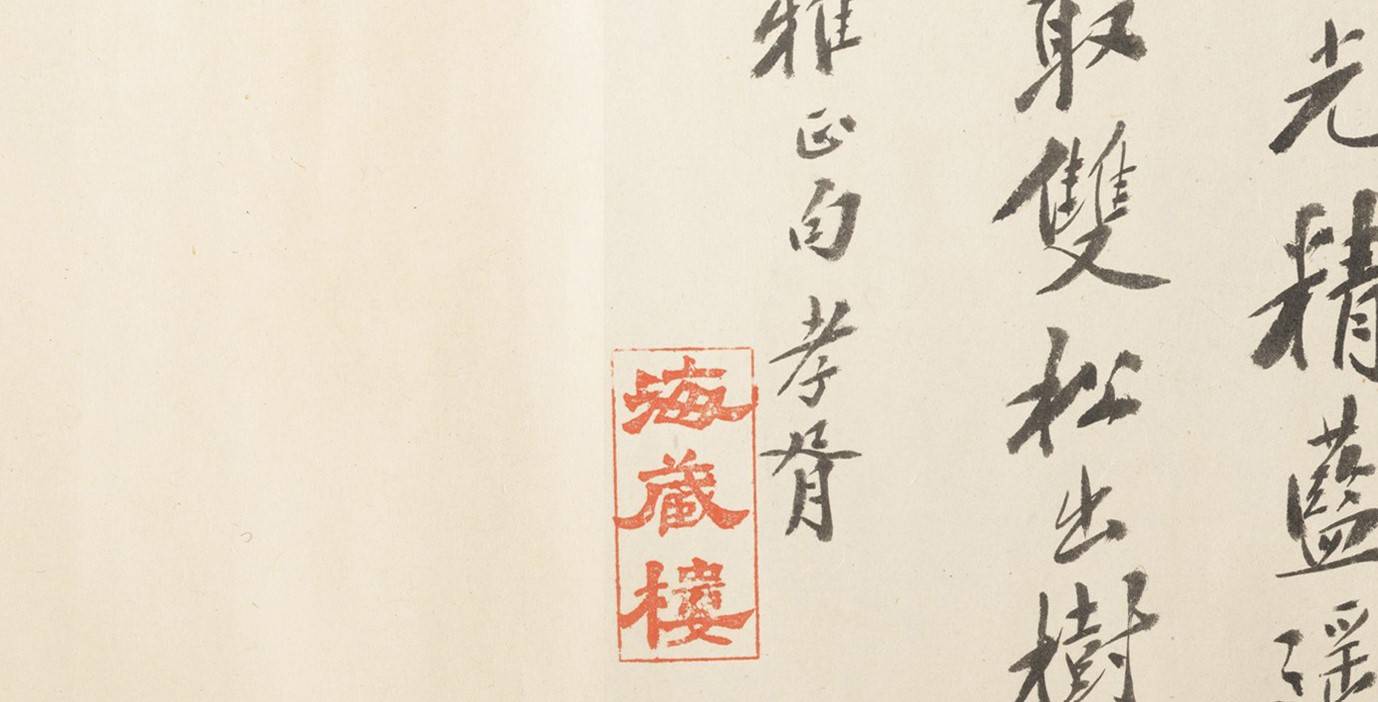 光精藍
取雙松出樹
雅正 孝胥
海藏樓